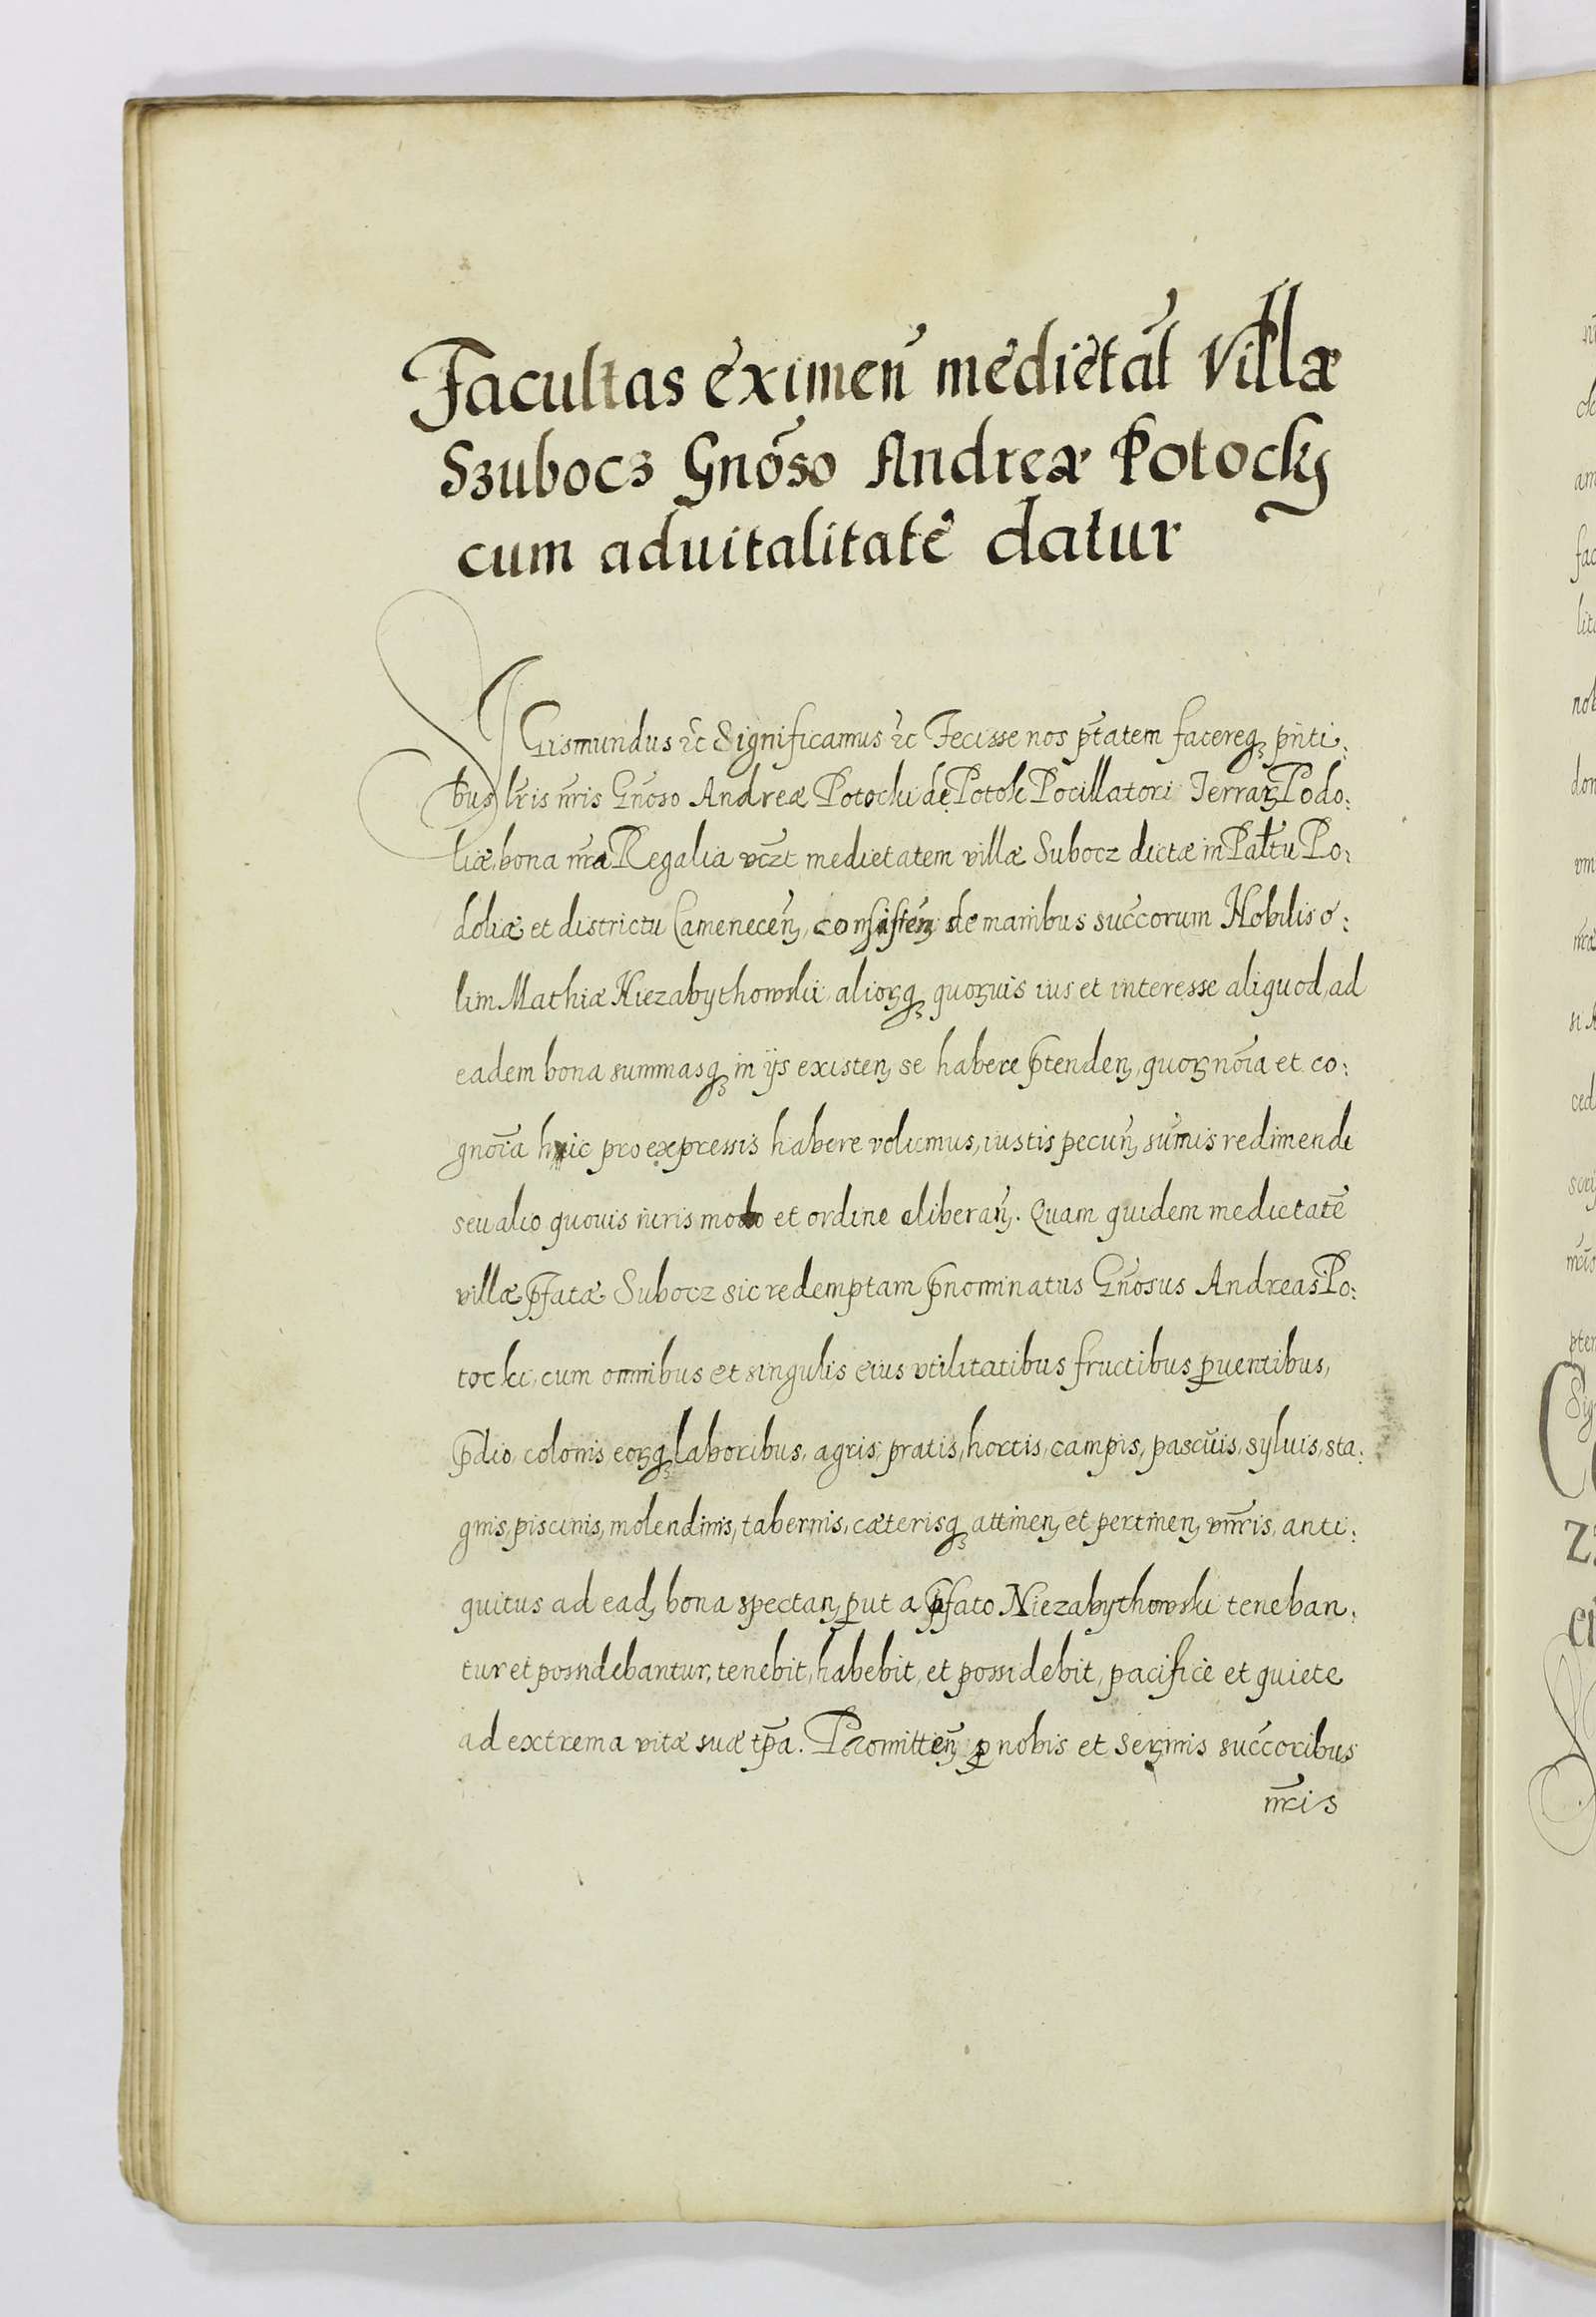 Facultas eximen̄ medietat̄ Villæ
Szubocz Gnōso Andreæ Potocky
cum aduitalitatē datur
SIGismundus ꝛc̄ Significamus ꝛc̄ Fecisse nos ptātem facereqꝫ pn̄ti:
bus lr̄is nr̄is Gnōso Andreæ Potocki de Potok Pocillatori Terrarꝫ Podo:
liæ, bona nr̄a Regalia vcz̄t medietatem villæ Subocz dictæ in Pal̄tu Po:
doliæ et districtu Camenecen̄, consisten̄ de manibus succ̄orum Nobilis o:
lim Mathiæ Niezabythowski aliorꝫqꝫ quorꝫuis ius et interesse aliquod, ad
eadem bona summasqꝫ in ijs existen̄, se habere p̄tenden̄, quorꝫ nōīa et co:
gnōīa hic pro expressis habere volumus, iustis pecun̄, sum̄is redimendi
seu alio quouis iuris modo et ordine eliberan̄. Quam quidem medietatē
villæ p̄fatæ Subocz sic redemptam p̄nominatus Gnōsus Andreas Po:
tocki, cum omnibus et singulis eius vtilitatibus fructibus ꝓuentibus,
p̄dio, colonis eorꝫqꝫ laboribus, agris, pratis, hortis, campis, pascuis, syluis, sta:
gnis, piscinis, molendinis, tabernis, cæterisqꝫ attinen̄, et pertinen̄, vnr̄is, anti:
quitus ad ead, bona spectan̄, ꝓut a p̄fato Niezabythowski teneban:
tur et possidebantur, tenebit, habebit, et possidebit, pacificè et quiete
ad extrema vitæ suæ tp̄a. Promitten̄ ꝓ nobis et Serꝫmis succ̄oribus
nr̄is